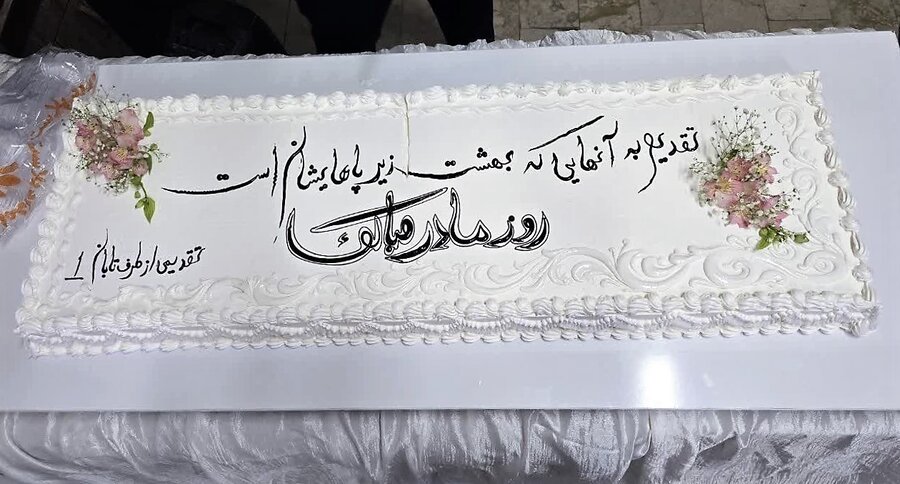 تقدیم به آنهایی که بهشت زیر پاهایشان است
روز مادر مبارک
تقدیمی از طرف تابان 1